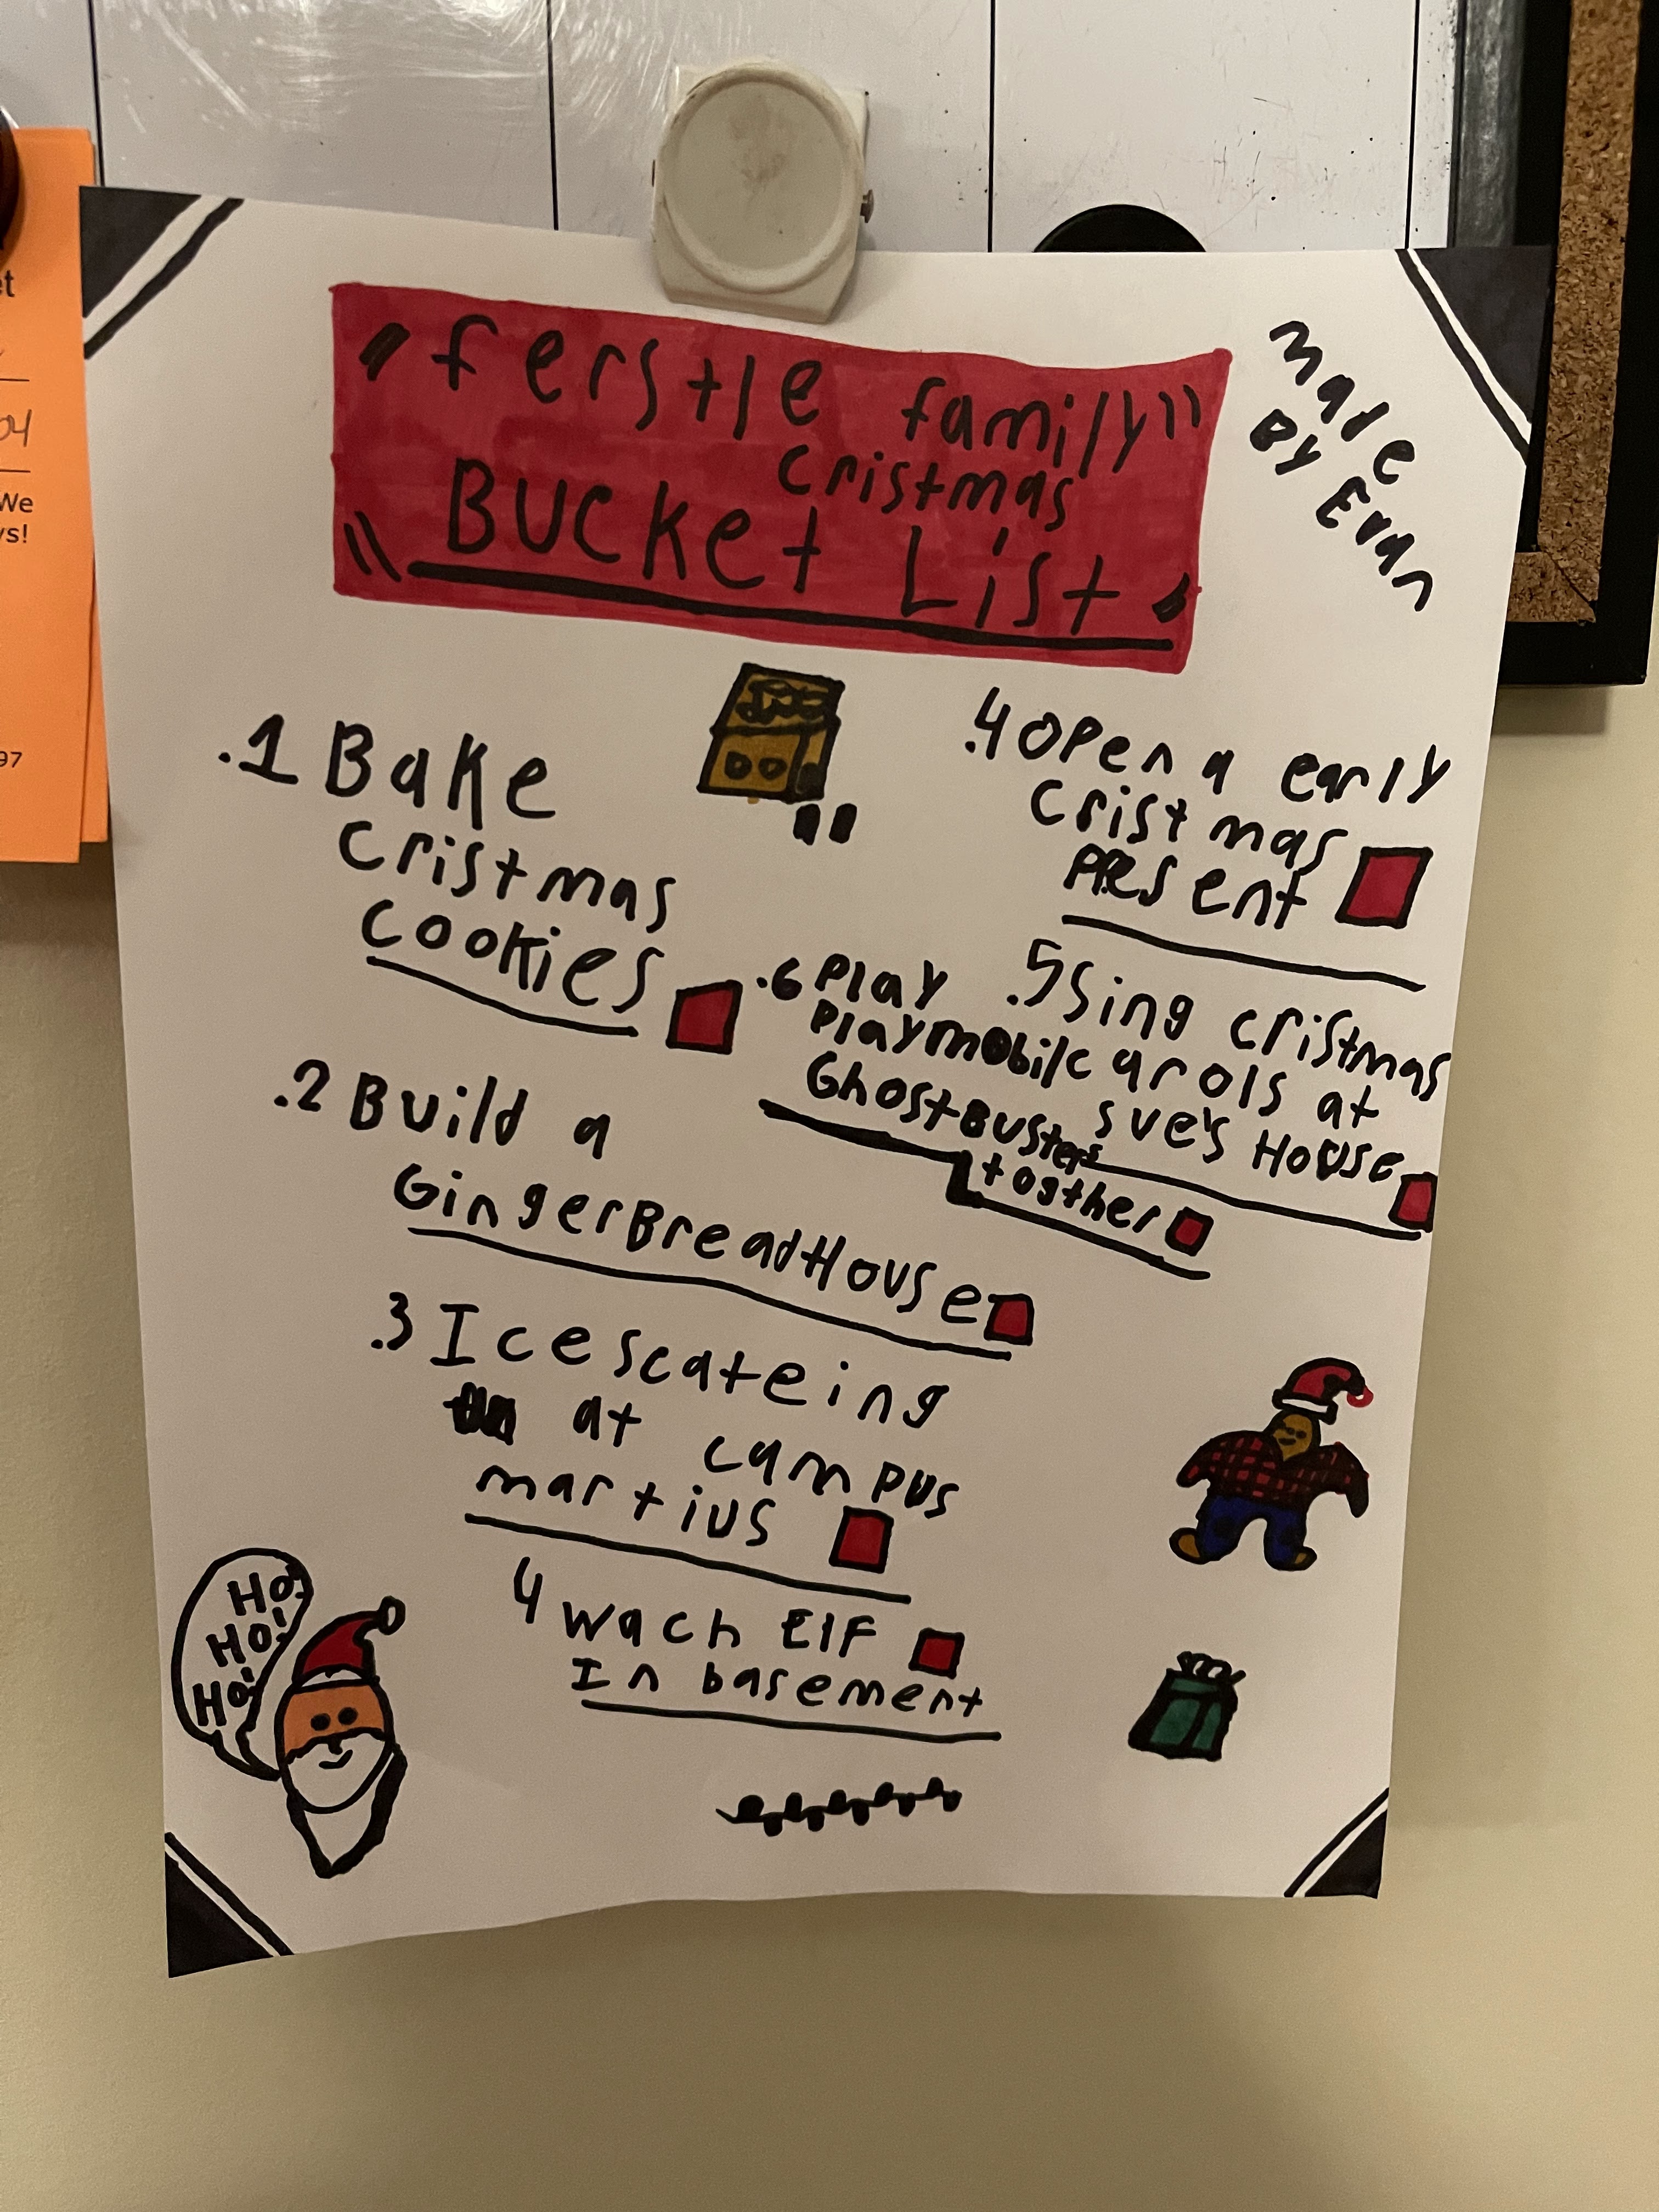 "ferstle family"
cristmas
"Bucket List"
made
By Evan
.1 Bake
cristmas
cookies
.2 Build a
GingerBreadHouse
.3 Icescateing
at campus
martius
4 wach Elf
In basement
.4 open a early
cristmas
present
.5 Sing cristmas
carols at
sve's House
.6 Play
Playmobil
GhostBusters
together
Ho!
Ho!
Ho!
et
04
We
ys!
97